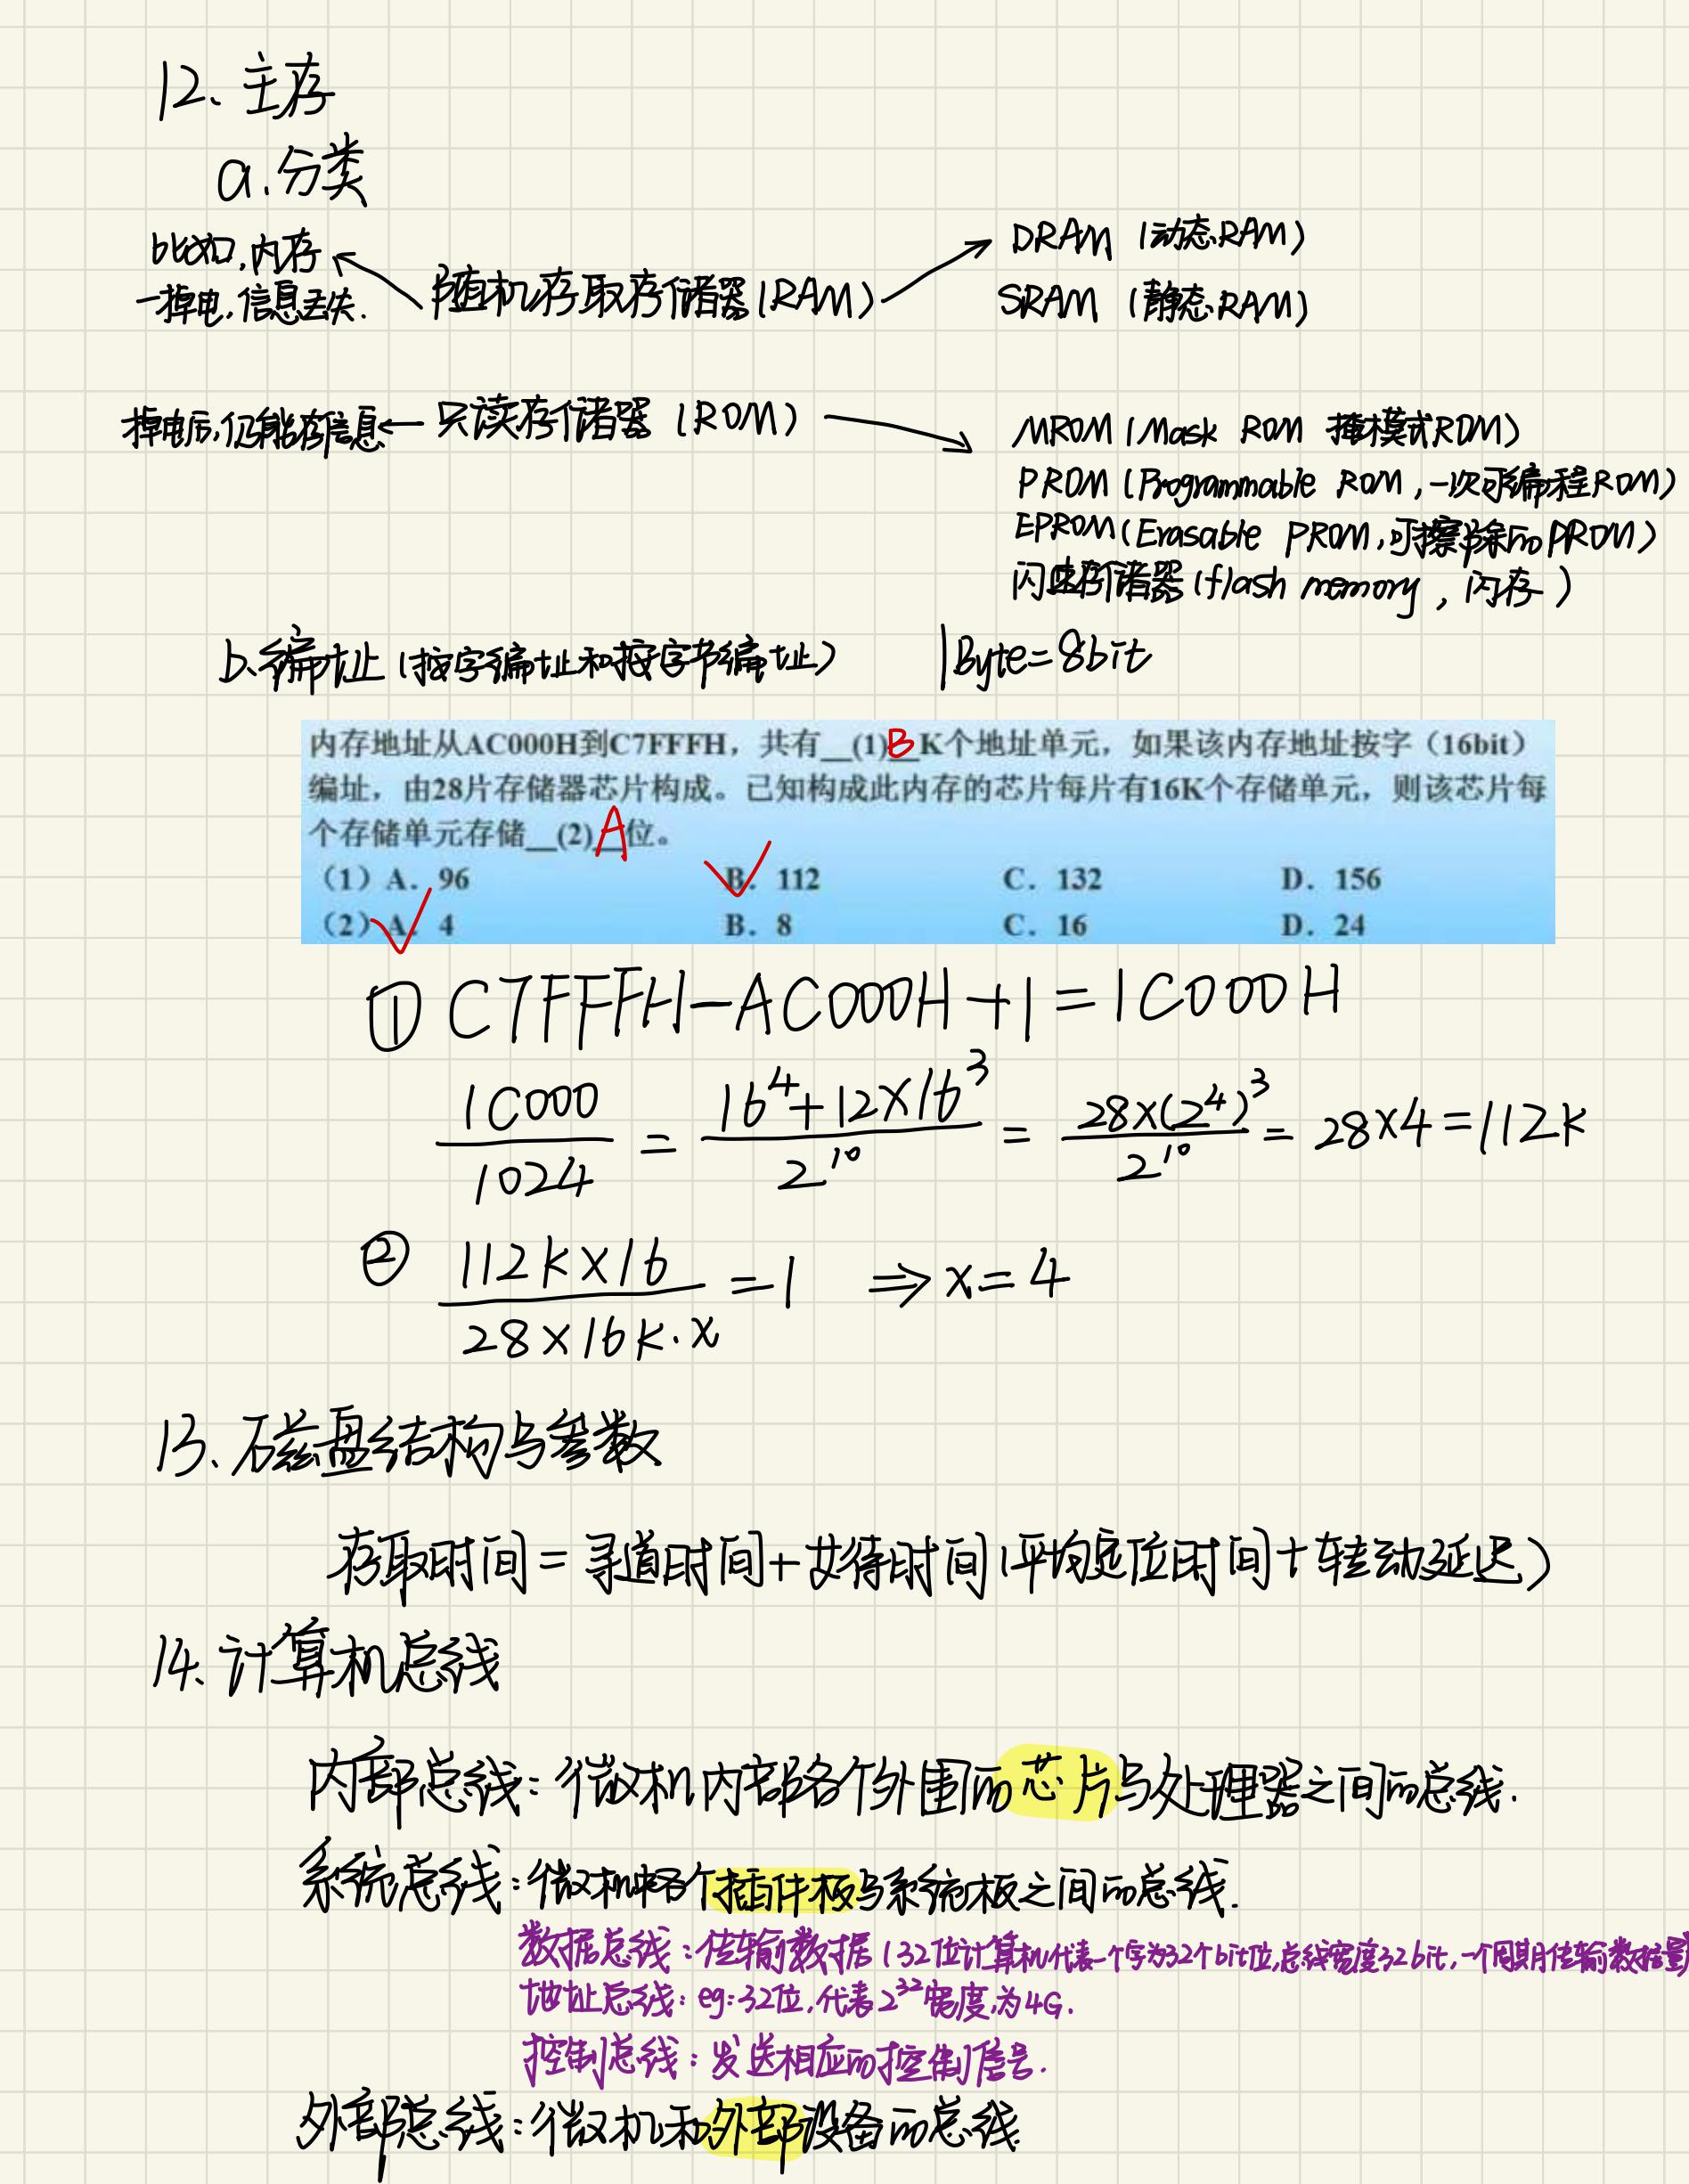 12、主存
a.分类
比如,内存
一掉电,信息丢失.
随机存取存储器(RAM)
DRAM (动态RAM)
SRAM (静态RAM)
掉电后,仍能存信息
只读存储器 (ROM)
MROM (Mask ROM 掩模式ROM)
PROM (Programmable ROM,一次可编程ROM)
EPROM (Erasable PROM,可擦除的PROM)
闪速存储器 (flash memory,闪存)
b.编址 (按字编址和按字节编址) 1Byte=8bit
内存地址从AC000H到C7FFFH,共有__(1)__B K个地址单元,如果该内存地址按字(16bit)
编址,由28片存储器芯片构成。已知构成此内存的芯片每片有16K个存储单元,则该芯片每
个存储单元存储__(2)__A位。
(1)A.96 B.112 C.132 D.156
(2)A.4 B.8 C.16 D.24
① C7FFFH-AC000H+1=1C000H
1C000/1024 = (16^4+12×16^3)/2^10 = 28×(2^4)^3/2^10 = 28×4=112K
② 112K×16/(28×16K·x) =1 ⇒ x=4
13、磁盘结构与参数
存取时间=寻道时间+等待时间(平均定位时间+转动延迟)
14、计算机总线
内部总线:微机内部各个外围的芯片与处理器之间的总线.
系统总线:微机中各个插件板与系统板之间的总线.
数据总线:传输数据(32位计算机代表一个字为32个bit位,总线宽度32bit,一个周期传输数据量
地址总线:eg:32位,代表2^32宽度,为4G.
控制总线:发送相应的控制信号.
外部总线:微机和外部设备的总线